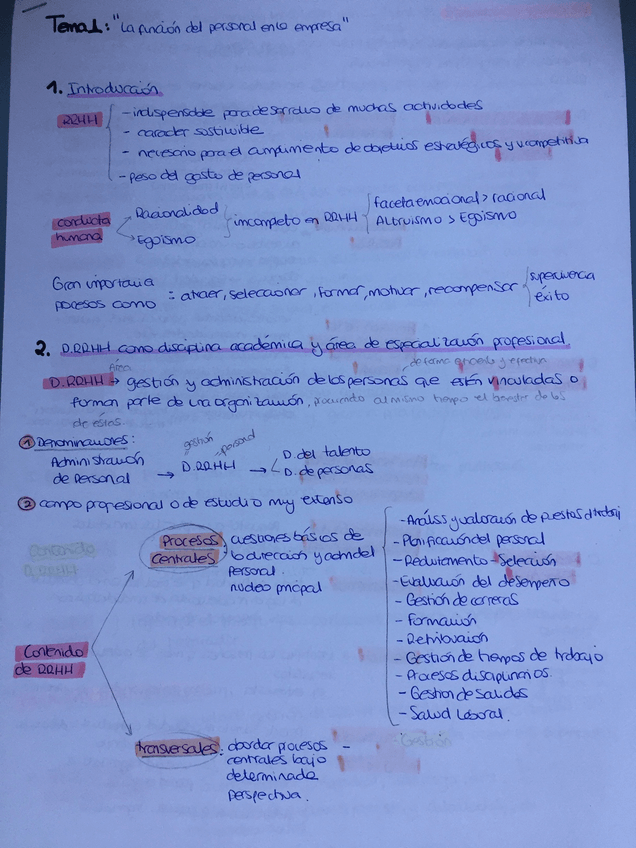 Tema 1: "La función del personal en la empresa"
1. Introducción
RRHH
- indispensable para desarrollo de muchas actividades
- caracter sostenible
- necesario para el cumplimiento de objetivos estratégicos y v.competitiva
- peso del gasto de personal
conducta humana
Racionalidad
Egoísmo
incompleto en RRHH
faceta emocional > racional
Altruismo > Egoísmo
Gran importancia
procesos como = atraer, seleccionar, formar, motivar, recompensar
supervivencia
éxito
2. D.RRHH como disciplina académica y área de especialización profesional
Área
de forma
D.RRHH → gestión y administración de las personas que están vinculadas o
forman parte de una organización, al mismo tiempo el bienestar de los
de éstas.
① Denominaciones:
gestión personal
Administración de Personal → D.RRHH →
D. del talento
D. de personas
② campo profesional o de estudio muy extenso
Contenido
D.RRHH
Contenido de RRHH
Procesos centrales: cuestiones básicas de
la dirección y adm del
personal.
núcleo principal
- Análisis y valoración de puestos d trabaj
- Planificación del personal
- Reclutamiento - Selección
- Evaluación del desempeño
- Gestión de carreras
- Formación
- Retribución
- Gestión de tiempos de trabajo
- Procesos disciplinarios.
- Gestion de salidas
- Salud Laboral.
transversales: abordar procesos -
centrales bajo
determinada
perspectiva.
Gestión